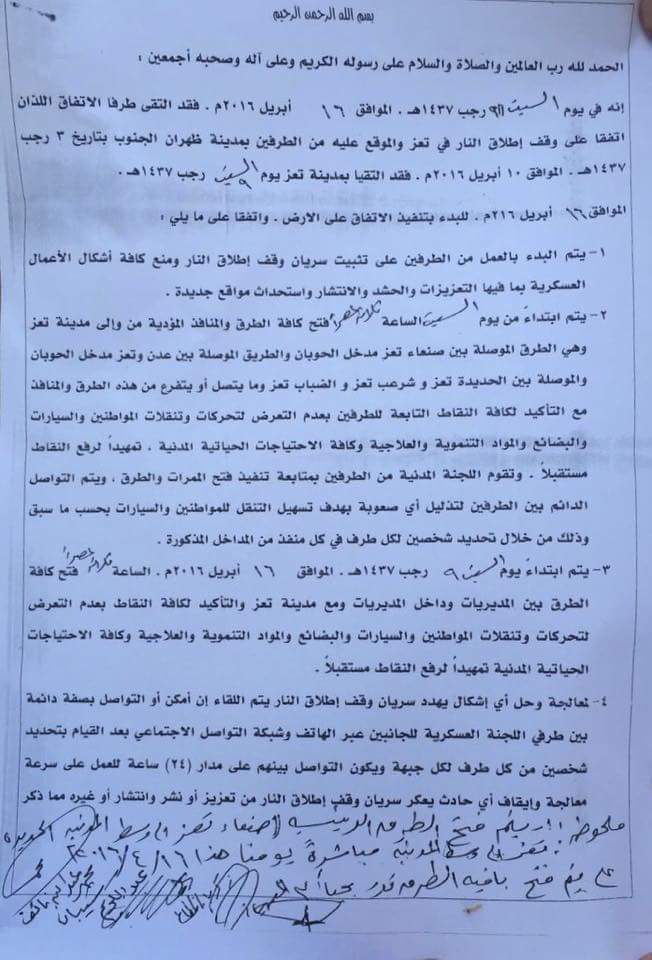 بسم الله الرحمن الرحيم
الحمد لله رب العالمين والصلاة والسلام على رسوله الكريم وعلى آله وصحبه أجمعين :
إنه في يوم السبت ٩ رجب ١٤٣٧هـ . الموافق ١٦ أبريل ٢٠١٦م . فقد التقى طرفا الاتفاق اللذان
اتفقا على وقف إطلاق النار في تعز والموقع عليه من الطرفين بمدينة ظهران الجنوب بتاريخ ٣ رجب
١٤٣٧هـ . الموافق ١٠ أبريل ٢٠١٦م . فقد التقيا بمدينة تعز يوم السبت ٩ رجب ١٤٣٧هـ .
الموافق ١٦ أبريل ٢١٦م . للبدء بتنفيذ الاتفاق على الارض . واتفقا على ما يلي :
١- يتم البدء بالعمل من الطرفين على تثبيت سريان وقف إطلاق النار ومنع كافة أشكال الأعمال
العسكرية بما فيها التعزيزات والحشد والانتشار واستحداث مواقع جديدة .
٢- يتم ابتداءً من يوم السبت الساعة ثلاثة عصراً فتح كافة الطرق والمنافذ المؤدية من وإلى مدينة تعز
وهي الطرق الموصلة بين صنعاء تعز مدخل الحوبان والطريق الموصلة بين عدن وتعز مدخل الحوبان
والموصلة بين الحديدة تعز و شرعب تعز و الضباب تعز وما يتصل أو يتفرع من هذه الطرق والمنافذ
مع التأكيد لكافة النقاط التابعة للطرفين بعدم التعرض لتحركات وتنقلات المواطنين والسيارات
والبضائع والمواد التنموية والعلاجية وكافة الاحتياجات الحياتية المدنية . تمهيداً لرفع النقاط
مستقبلاً . وتقوم اللجنة المدنية من الطرفين بمتابعة تنفيذ فتح الممرات والطرق ، ويتم التواصل
الدائم بين الطرفين لتذليل أي صعوبة بهدف تسهيل التنقل للمواطنين والسيارات بحسب ما سبق
وذلك من خلال تحديد شخصين لكل طرف في كل منفذ من المداخل المذكورة .
٣- يتم ابتداءً يوم السبت ٩ رجب ١٤٣٧هـ . الموافق ١٦ أبريل ٢٠١٦م . الساعة ثلاثة عصراً فتح كافة
الطرق بين المديريات وداخل المديريات ومع مدينة تعز والتأكيد لكافة النقاط بعدم التعرض
لتحركات وتنقلات المواطنين والسيارات والبضائع والمواد التنموية والعلاجية وكافة الاحتياجات
الحياتية المدنية تمهيداً لرفع النقاط مستقبلاً .
٤- لمعالجة وحل أي إشكال يهدد سريان وقف إطلاق النار يتم اللقاء إن أمكن أو التواصل بصفة دائمة
بين طرفي اللجنة العسكرية للجانبين عبر الهاتف وشبكة التواصل الاجتماعي بعد القيام بتحديد
شخصين من كل طرف لكل جبهة ويكون التواصل بينهم على مدار (٢٤) ساعة للعمل على سرعة
معالجة وإيقاف أي حادث يعكر سريان وقف إطلاق النار من تعزيز أو نشر وانتشار أو غيره مما ذكر
ملحوظة : يتم فتح الطرق الرئيسية صنعاء تعز وسط المدينة الحديدة
تعز المدينة مباشرةً يومنا هذا ١٦/٤/٢٠١٦
يتم فتح باقية الطرق